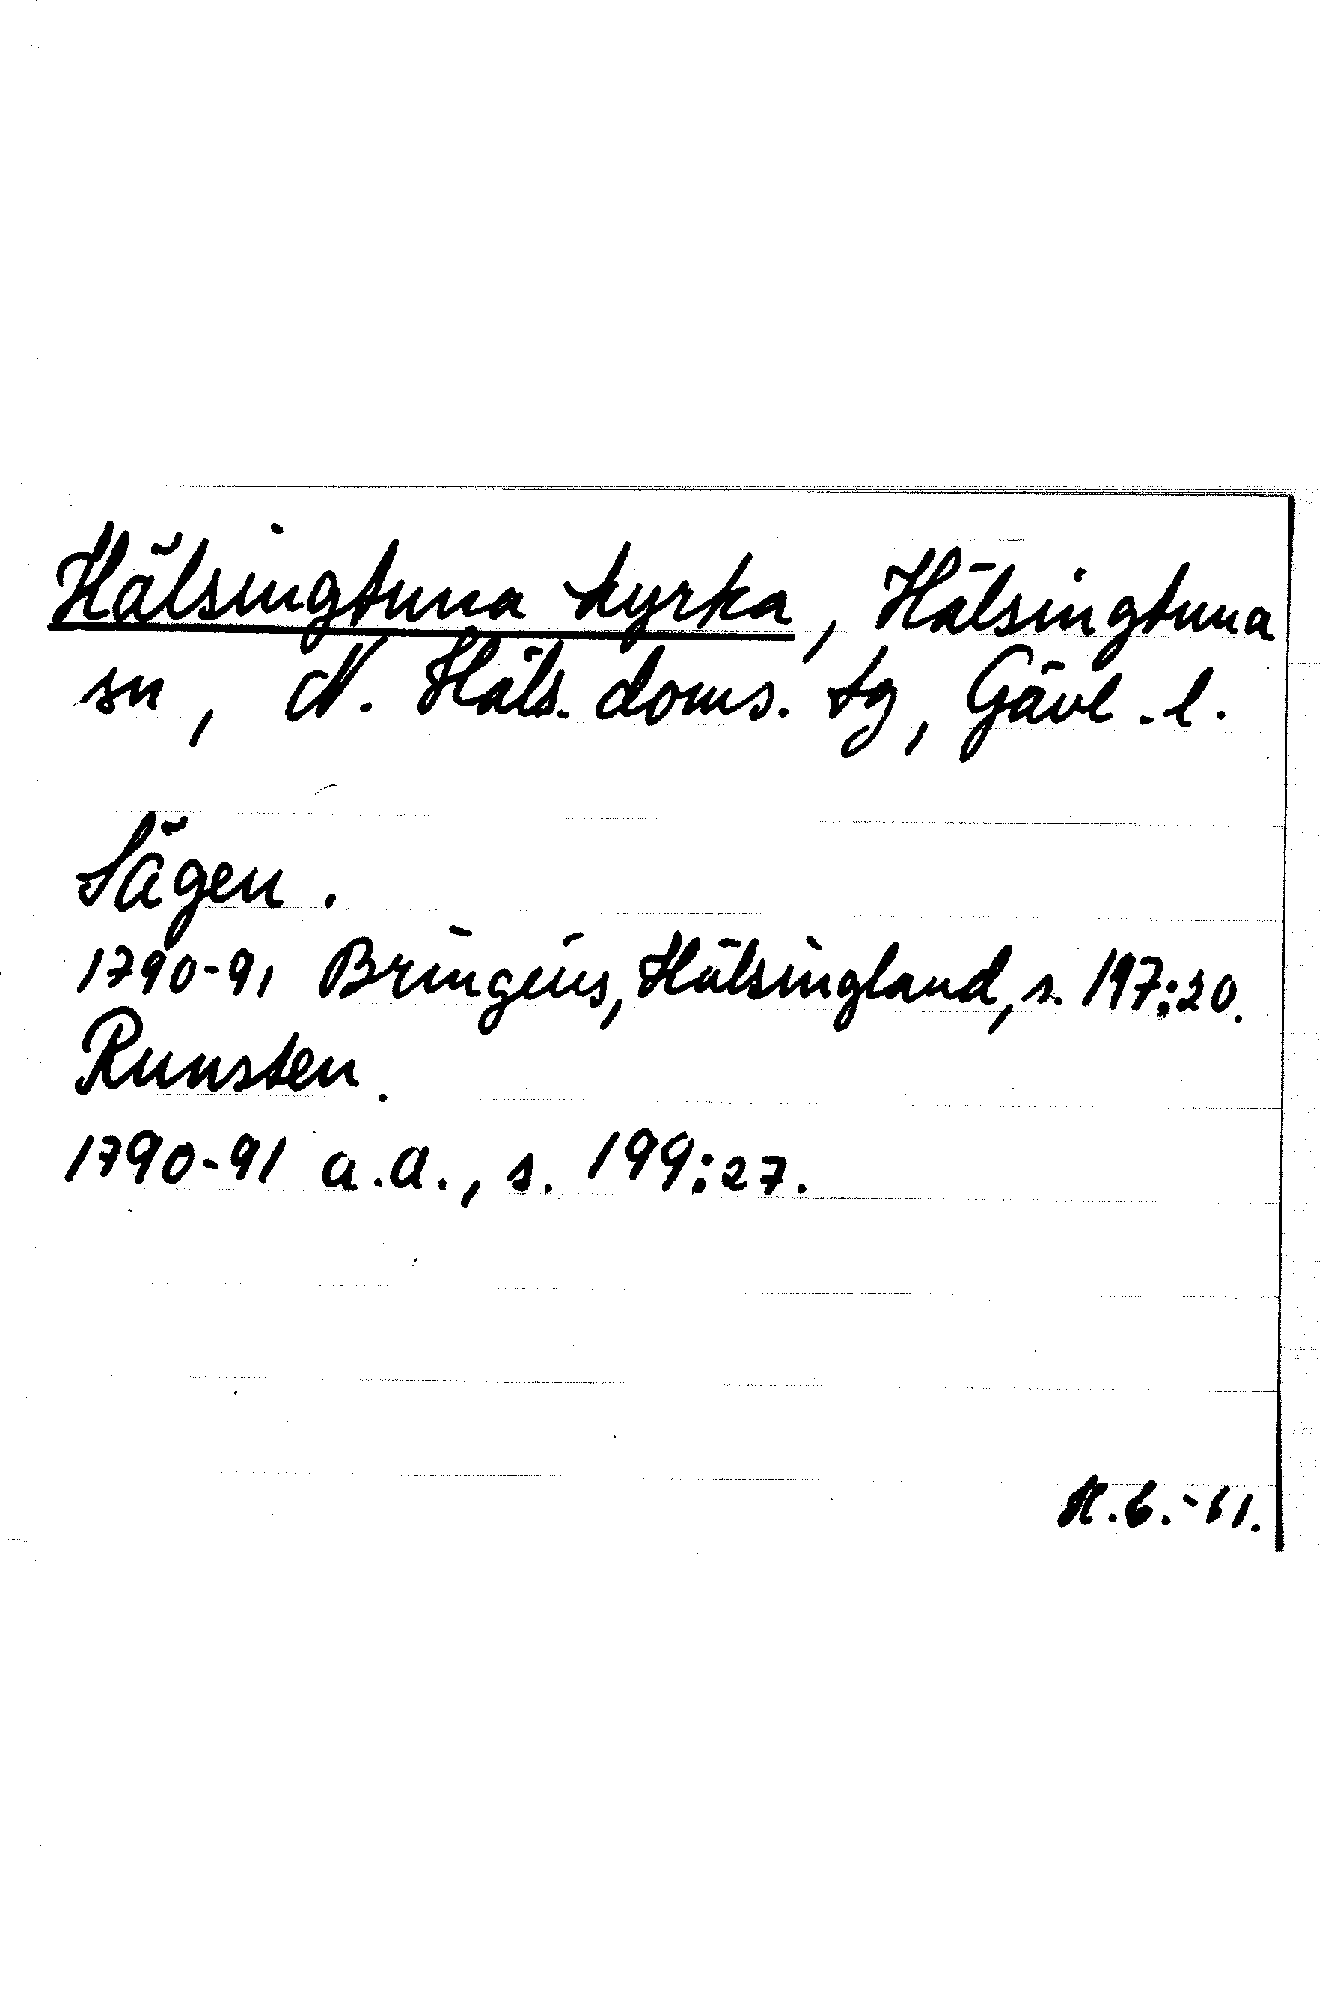 Hälsingtuna kyrka, Hälsingtuna
sn, N. Häls. doms. tg, Gävl. l.
Sägen.
1790-91 Bringéus, Hälsingland, s. 197:20.
Runsten.
1790-91 a.a., s. 199:27.